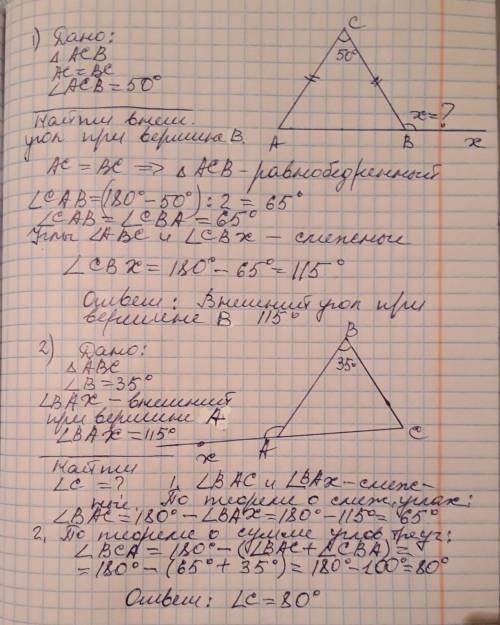 1) Дано:
△ ACB
AC = BC
∠ACB = 50°
C
50°
A
B
x = ?
x
Найти внеш.
угол при вершине B.
AC = BC => △ ACB - равнобедренный
∠CAB = (180° - 50°) : 2 = 65°
∠CAB = ∠CBA = 65°
Углы ∠ABC и ∠CBX - смежные
∠CBX = 180° - 65° = 115°
Ответ: Внешний угол при
вершине B 115°
2) Дано:
△ABC
∠B = 35°
∠BAX - внешний
при вершине A
∠BAX = 115°
B
35°
x
A
C
Найти
∠C = ?
1. ∠BAC и ∠BAX - смеж-
ные. По теореме о смеж. углах:
∠BAC = 180° - ∠BAX = 180° - 115° = 65°
2. По теореме о сумме углов треуг:
∠BCA = 180° - (∠BAC + ∠CBA) =
= 180° - (65° + 35°) = 180° - 100° = 80°
Ответ: ∠C = 80°